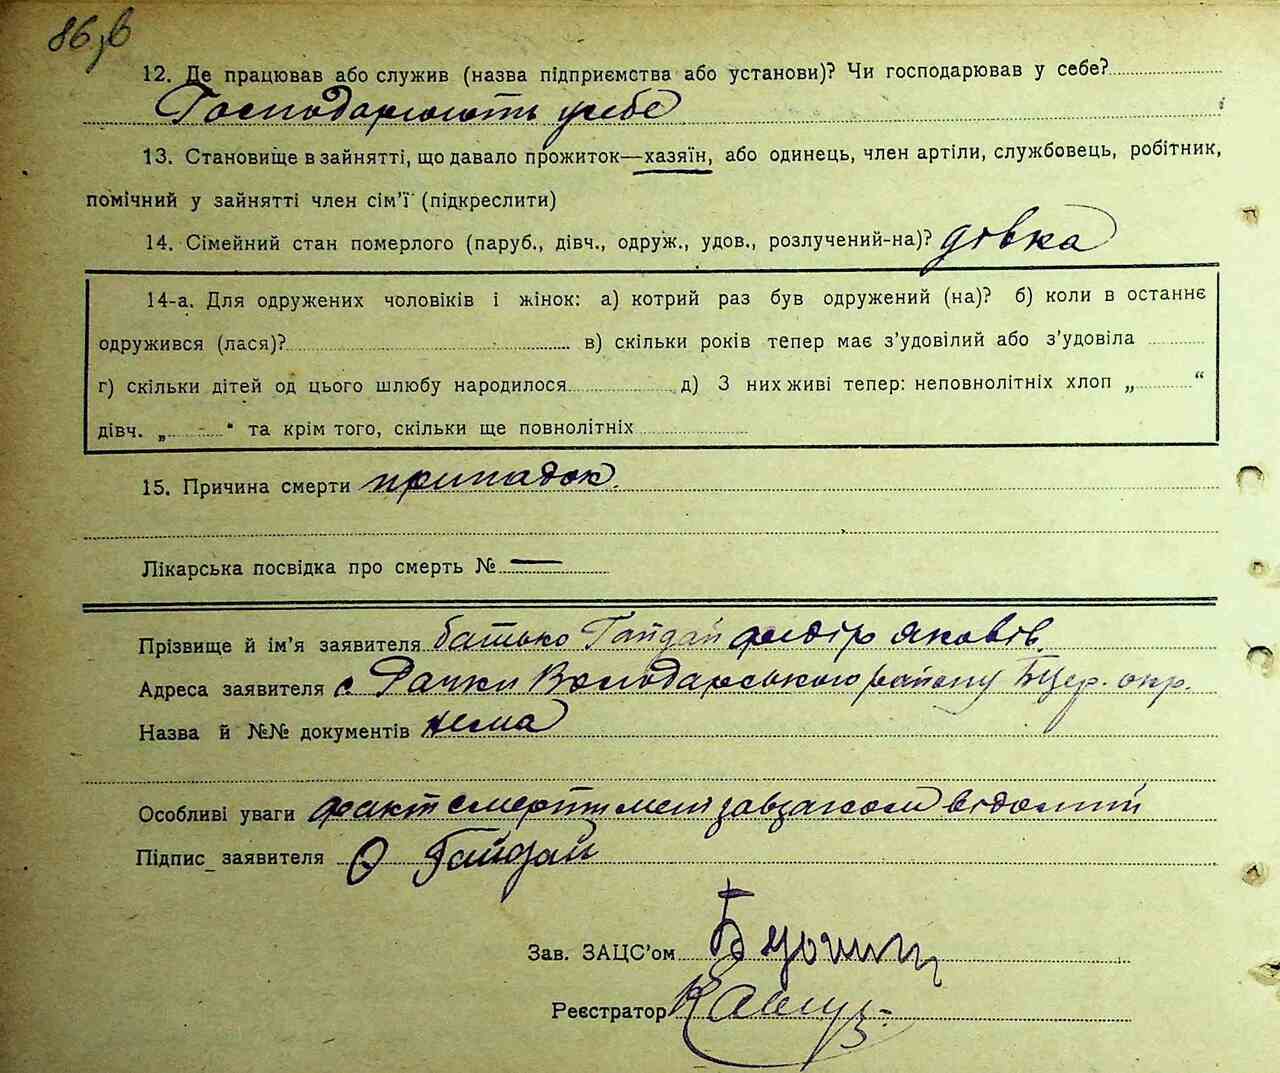 86,в
12. Де працював або служив (назва підприємства або установи)? Чи господарював у себе?
Господарюють у себе
13. Становище в зайнятті, що давало прожиток—хазяїн, або одинець, член артіли, службовець, робітник,
помічний у зайнятті член сім'ї (підкреслити)
14. Сімейний стан померлого (паруб., дівч., одруж., удов., розлучений-на)? дівка
14-а. Для одружених чоловіків і жінок: а) котрий раз був одружений (на)? б) коли в останнє
одружився (лася)? в) скільки років тепер має з'удовілий або з'удовіла
г) скільки дітей од цього шлюбу народилося д) З них живі тепер: неповнолітніх хлоп „ “
дівч. „ “ та крім того, скільки ще повнолітніх
15. Причина смерти припадок.
Лікарська посвідка про смерть № —
Прізвище й ім'я заявителя батько Гайдай федір яковів.
Адреса заявителя с Рачки Володарського району БЦер. окр.
Назва й №№ документів нема
Особливі уваги факт смерти мені завзагсом відомий
Підпис заявителя Ф Гайдай
Зав. ЗАЦС'ом
Реєстратор